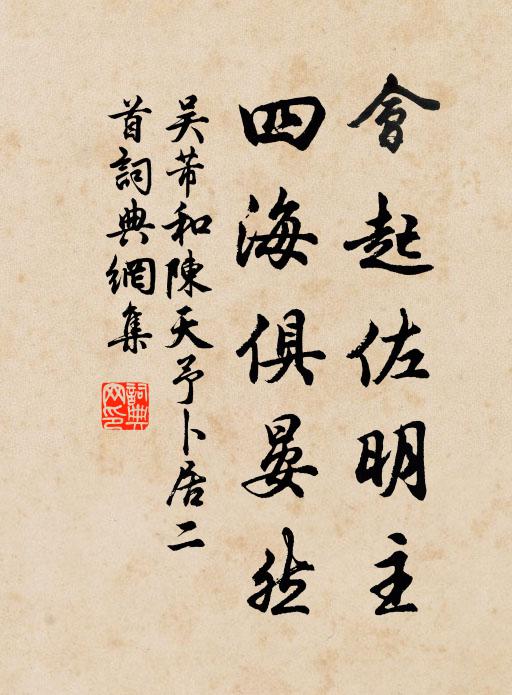 會起佐明主
四海俱晏然
吴芾和陳天予卜居二
首詞典網集
詞典
网印